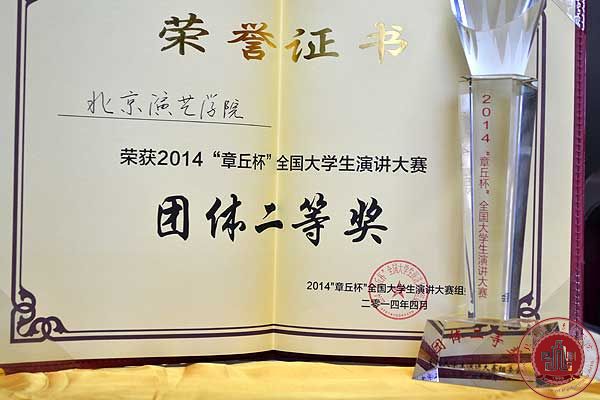 荣誉证书
北京演艺学院
荣获2014“章丘杯”全国大学生演讲大赛
团体二等奖
2014"章丘杯"全国大学生演讲大赛组
二零一四年四月
2014“章丘杯”全国大学生演讲大赛
团体二等